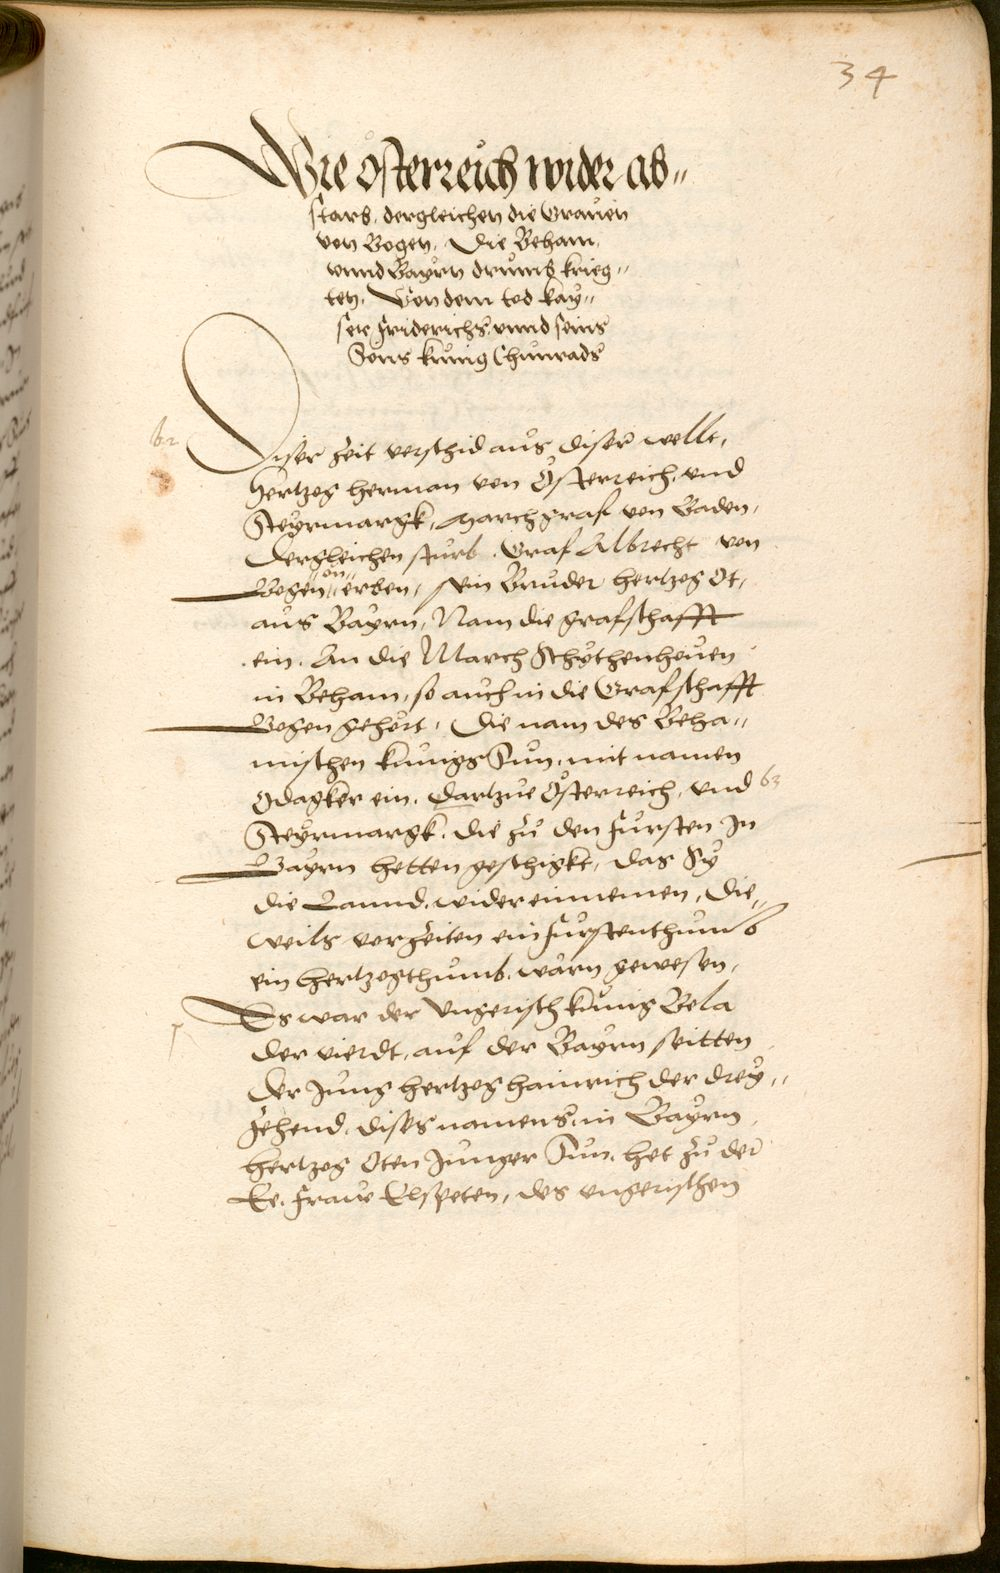 34
Wie Österreich wider ab„
starb, dergleichen die Grauen
von Bogen, Die Beham,
vnnd Bayrn drumb krieg„
ten, Von dem tod kay„
ser Friderichs, vnnd seins
Sons kunig Chunrads
62
Diser Zeit verschid aus diser wellt,
Hertzog Herman von Österreich, vnd
Steyrmargk, Marchgraf von Baden,
Dergleichen sturb Graf Albrecht von
Bogen on erben, sein Bruder Hertzog Ot,
aus Bayrn, Nam die grafschafft
ein. An die March Schythenhouen
in Beham, so auch in die Grafschafft
Bogen gehört, Die nam des Beha„
mischen kunigs Sun, mit namen
Odagker ein, Dartzue Österreich, vnd 63
Steyrmargk, die zu den Fursten In
Bayrn hetten geschigkt, das Sy
die Lannd, wider einnemen, die„
weils vor Zeiten ein furstenthumb
ein hertzogthumb, warn gewesen,
Es war der Vngerisch kunig Bela
der vierdt, auf der Bayrn seitten
Der Jung hertzog Hainrich der drey„
zehend, dises namens, in Bayrn,
hertzog Oten Junger Sun, het zu der
Ee, Fraw Elspeten, des vngerischen